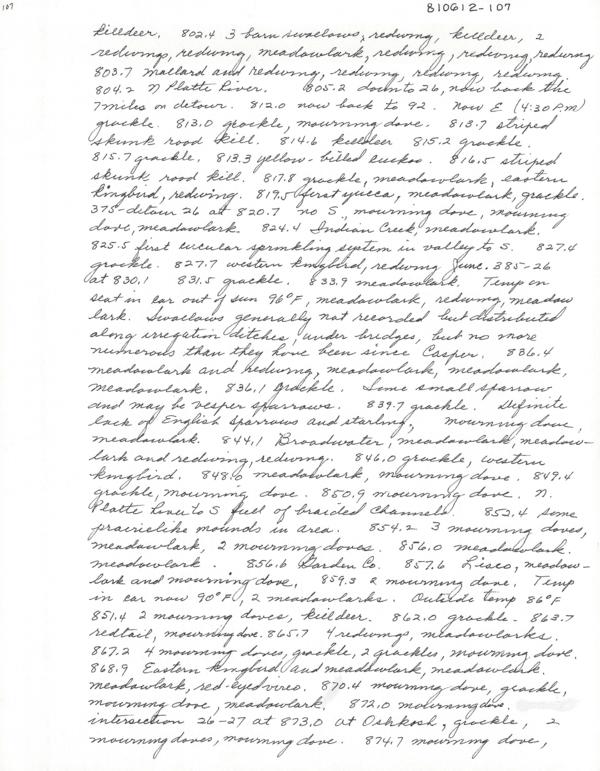 107
810612-107
killdeer. 802.4 3 barn swallows, redwing, killdeer, 2
redwings, redwing, meadowlark, redwing, redwing, redwing
803.7 mallard and redwing, redwing, redwing, redwing.
804.2 N Platte River. 805.2 down to 26, now back the
7 miles on detour. 812.0 now back to 92. Now E (4:30 P.M)
grackle. 813.0 grackle, mourning dove. 813.7 striped
skunk road kill. 814.6 killdeer 815.2 grackle.
815.7 grackle. 813.3 yellow-billed cuckoo. 816.5 striped
skunk road kill. 817.8 grackle, meadowlark, eastern
kingbird, redwing. 819.5 first yucca, meadowlark, grackle.
375-detour 26 at 820.7 no S., mourning dove, mourning
dove, meadowlark 824.4 Indian Creek, meadowlark.
825.5 first circular sprinkling system in valley to S. 827.4
grackle. 827.7 western kingbird, redwing June. 385-26
at 830.1 831.5 grackle. 833.9 meadowlark. Temp on
seat in car out of sun 96°F, meadowlark, redwing, meadow
lark. Swallows generally not recorded but distributed
along irregation ditches, under bridges, but no more
numerous than they have been since Casper. 836.4
meadowlark and redwing, meadowlark, meadowlark,
meadowlark. 836.1 grackle. Some small sparrow
and may be vesper sparrows. 839.7 grackle. Definite
lack of English Sparrows and starling, mourning dove,
meadowlark. 844.1 Broadwater, meadowlark, meadow-
lark and redwing, redwing. 846.0 grackle, western
kingbird. 848.0 meadowlark, mourning dove. 849.4
grackle, mourning dove. 850.9 mourning dove. N.
Platte River to S full of braided channels. 852.4 some
prairielike mounds in area. 854.2 3 mourning doves,
meadowlark, 2 mourning doves. 856.0 meadowlark.
meadowlark. 856.6 Garden Co. 857.6 Lisco, meadow-
lark and mourning dove. 859.3 2 mourning dove. Temp
in car now 90°F, 2 meadowlarks. Outside temp 86°F
851.4 2 mourning doves, killdeer. 862.0 grackle. 863.7
redtail, mourning dove. 865.7 4 redwings, meadowlarks.
867.2 4 mourning doves, grackle, 2 grackles, mourning dove.
868.9 Eastern kingbird and meadowlark, meadowlark.
meadowlark, red-eyed vireo. 870.4 mourning dove, grackle,
mourning dove, meadowlark. 872.0 mourning dove.
intersection 26-27 at 873.0 at Oshkosh, grackle, 2
mourning doves, mourning dove. 874.7 mourning dove,